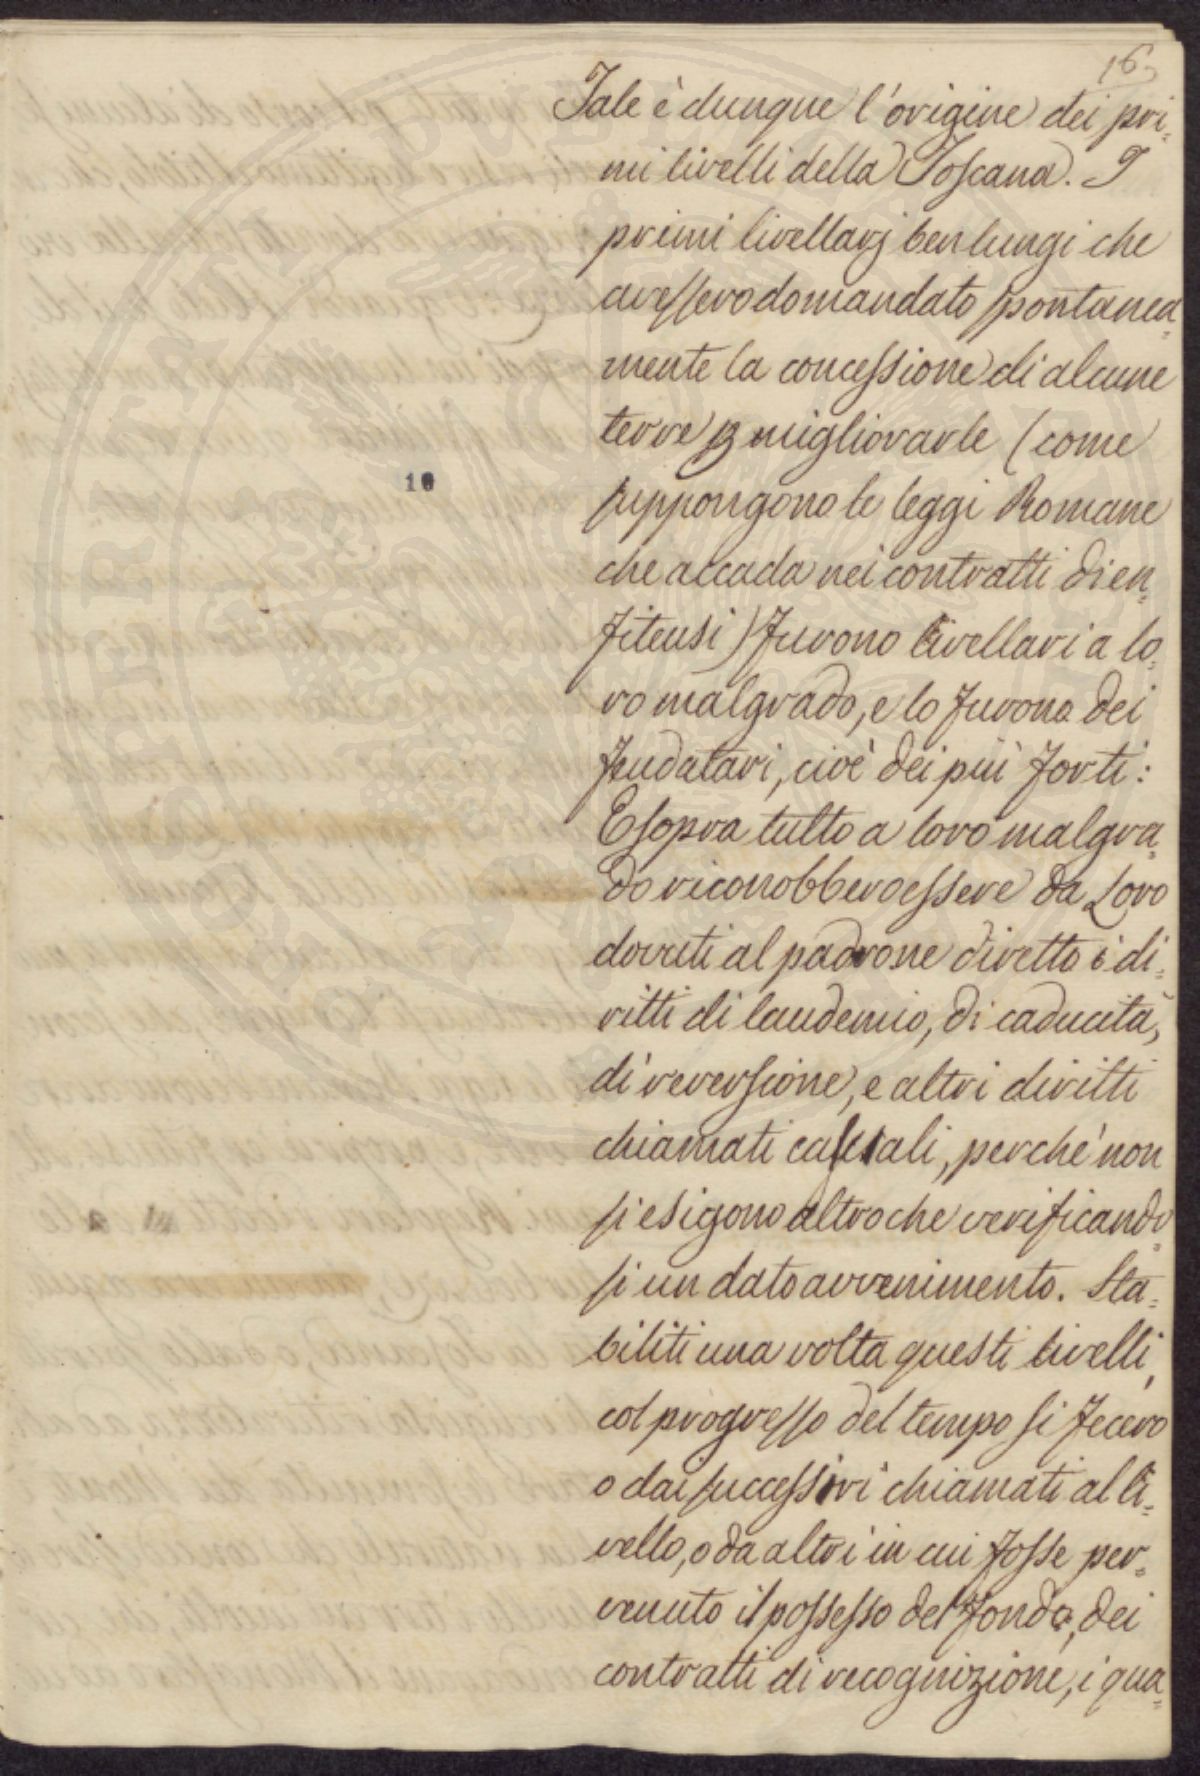 16
Tale è dunque l'origine dei pri=
mi livelli della Toscana. I
primi livellarj ben lungi che
avessero domandato spontanea=
mente la concessione di alcune
terre p migliorarle (come
suppongono le leggi Romane
che accada nei contratti di en=
fiteusi) furono livellari a lo=
ro malgrado, e lo furono dei
feudatari, cioè dei più forti:
E sopra tutto a loro malgra=
do riconobbero essere da Loro
dovuti al padrone diretto i di=
ritti di laudemio, di caducità,
di reversione, e altri diritti
chiamati casuali, perche non
si esigono altro che verificando=
si un dato avvenimento. Sta=
biliti una volta questi livelli,
col progresso del tempo si fecero
o dai successivi chiamati al li=
vello, o da altri in cui fosse per=
venuto il possesso del fondo, dei
contratti di recognizione, i qua=